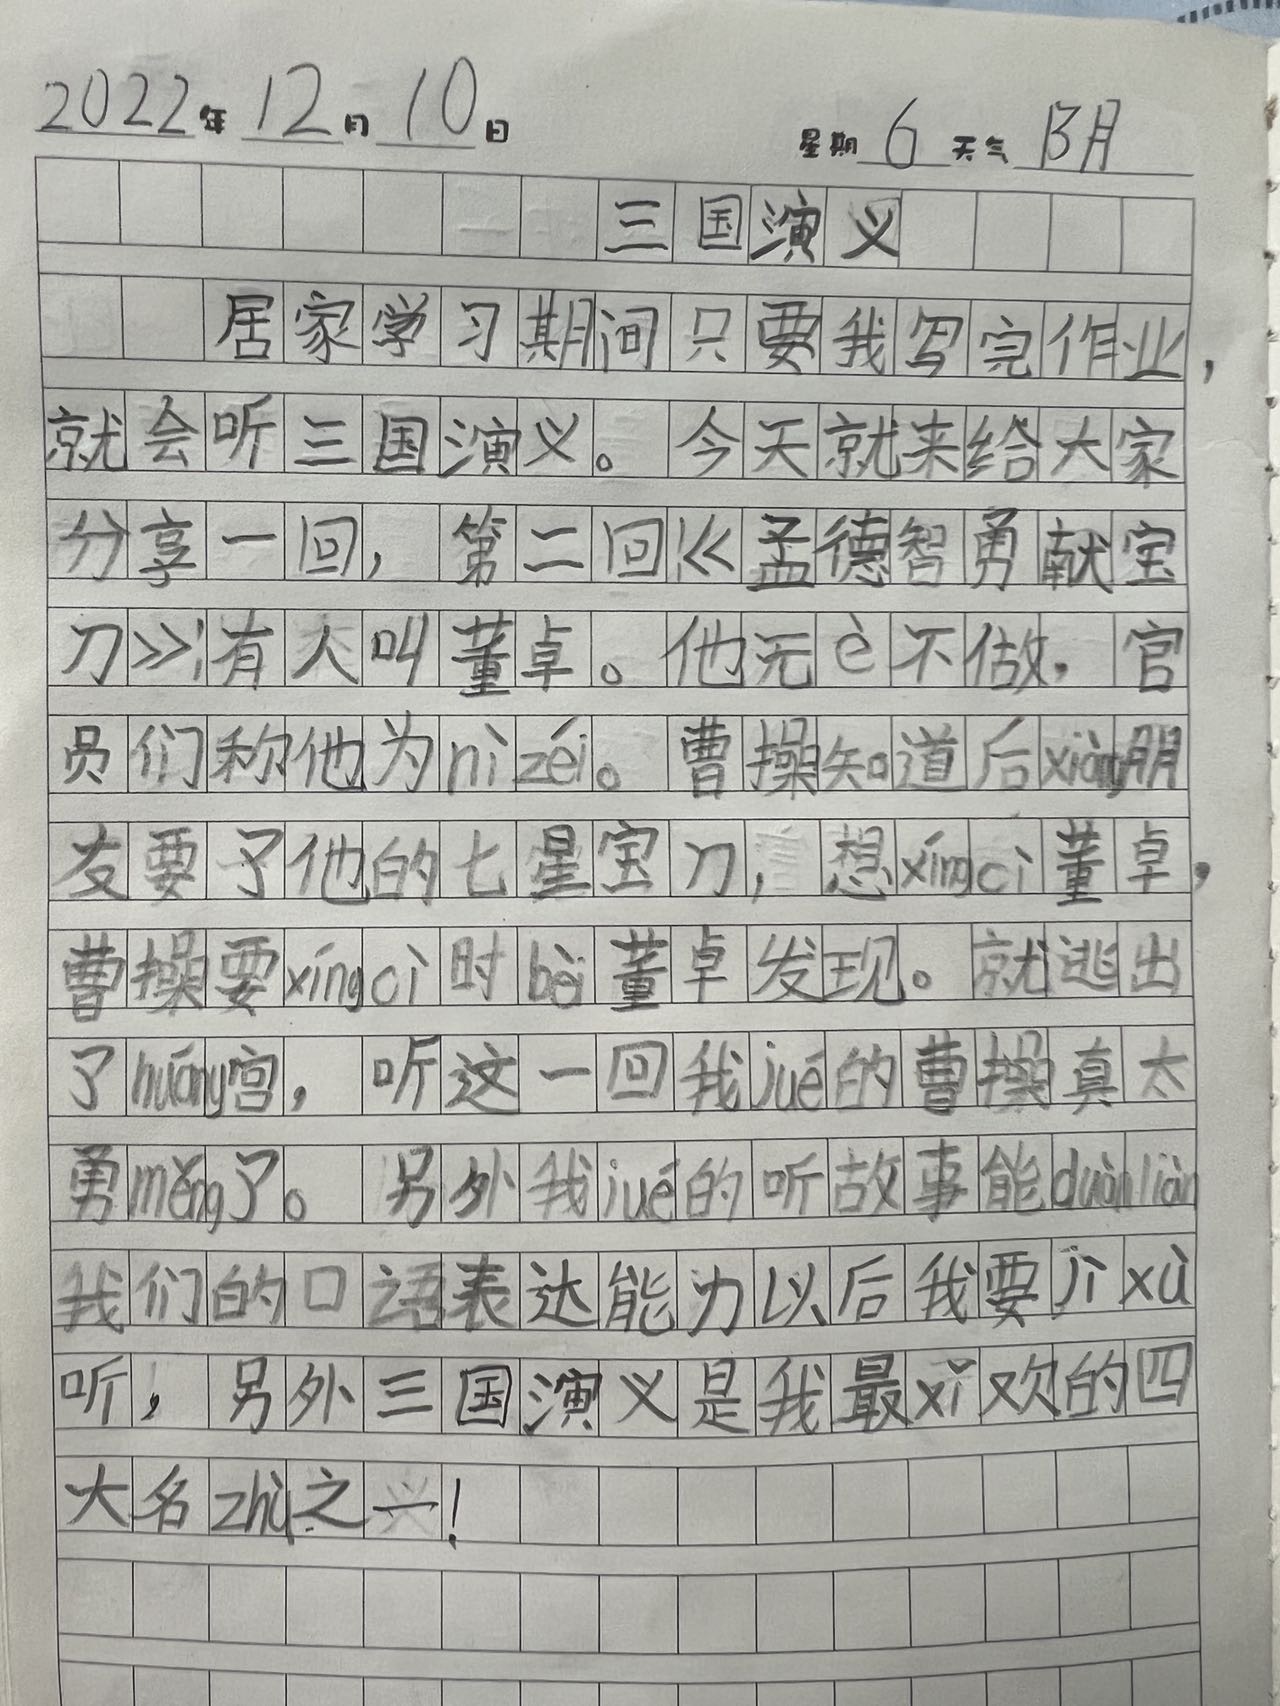 2022年12月10日 星期6 天气阴
三国演义
居家学习期间只要我写完作业，
就会听三国演义。今天就来给大家
分享一回，第二回《孟德智勇献宝
刀》：有人叫董卓。他无è不做，官
员们称他为nì zéi。曹操知道后xiàng朋
友要了他的七星宝刀，想xíng cì董卓，
曹操要xíng cì时bèi董卓发现。就逃出
了huáng宫，听这一回我jué的曹操真太
勇měng了。另外我jué的听故事能duàn liàn
我们的口语表达能力以后我要jì xù
听，另外三国演义是我最xǐ欢的四
大名zhù之一！